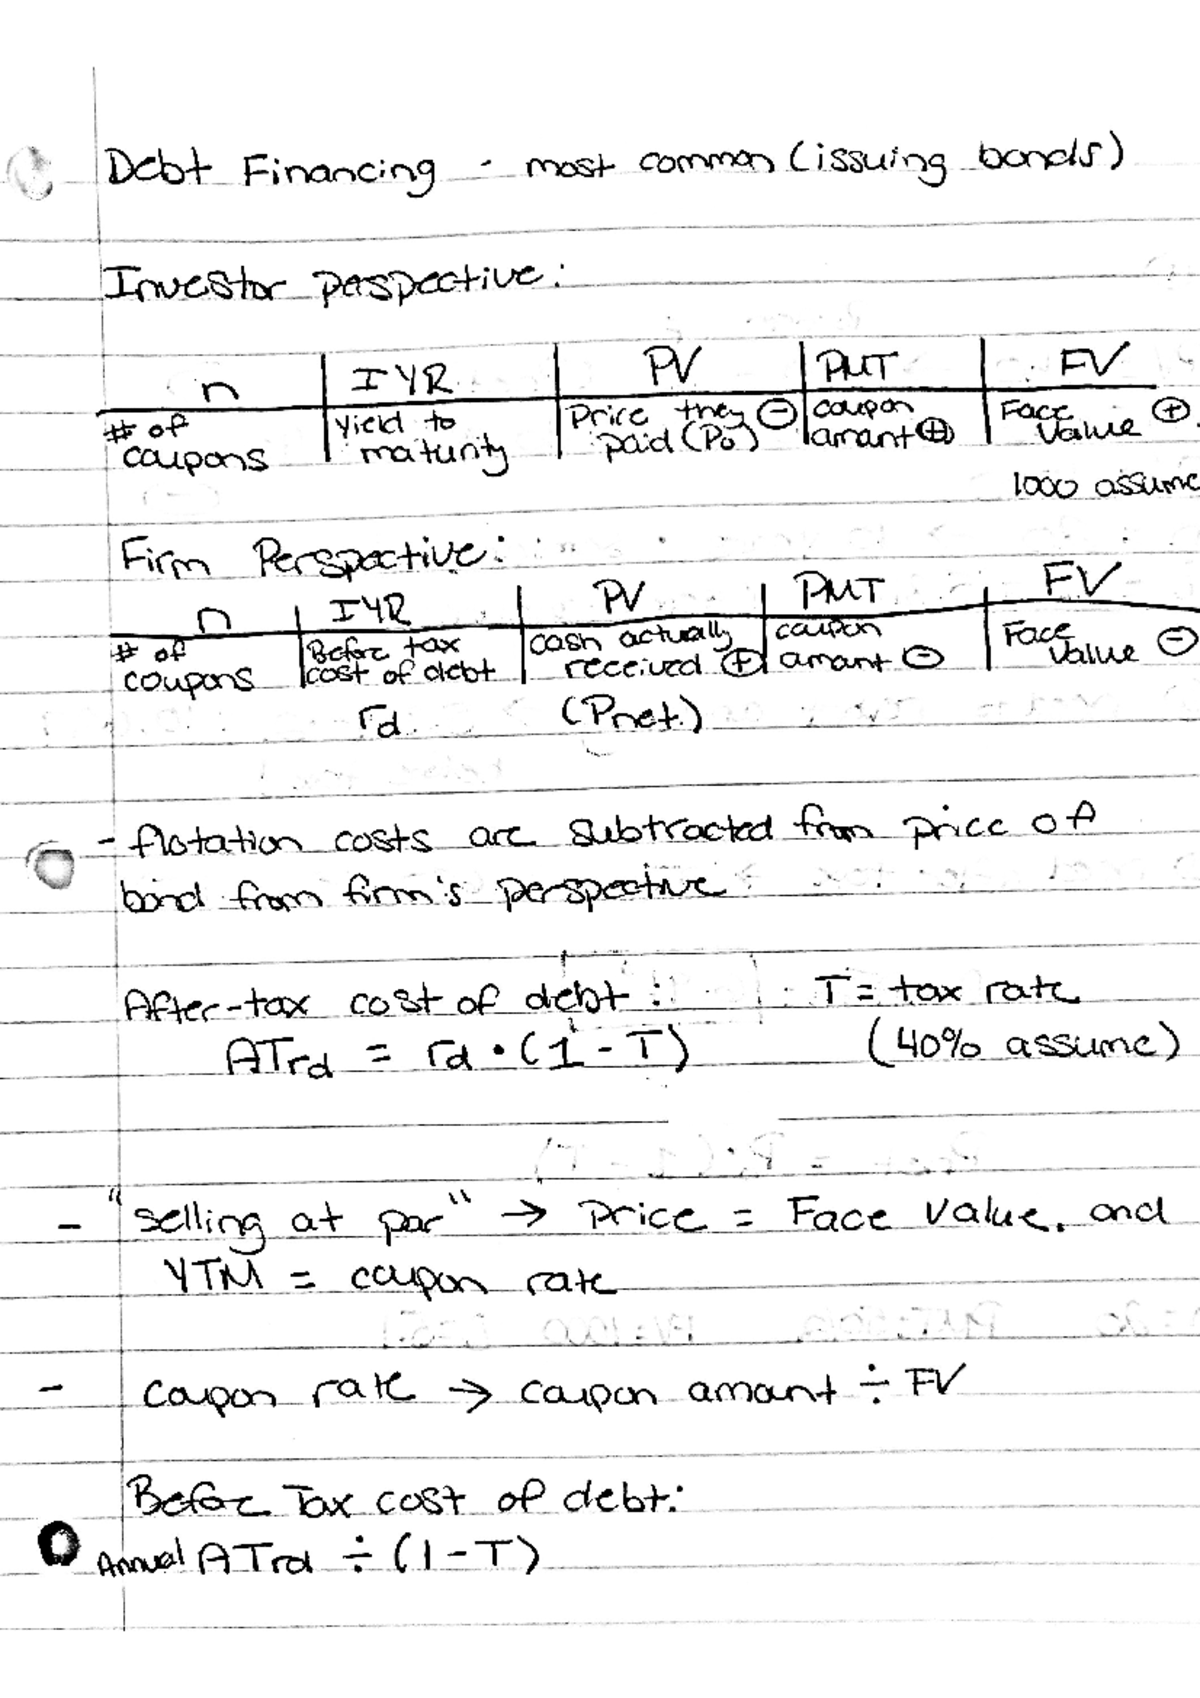 Debt Financing - most common (issuing bonds)
Investor perspective:
n | IYR | PV | PMT | FV
# of coupons | Yield to maturity | Price they paid (Po) ⊖ | coupon amount ⊕ | Face Value ⊕
1000 assume
Firm Perspective:
n | IYR | PV | PMT | FV
# of coupons | Before tax cost of debt | cash actually received ⊕ | coupon amount ⊖ | Face Value ⊖
rd (Pnet)
- flotation costs are subtracted from price of
bond from firm's perspective
After-tax cost of debt: T = tax rate
ATrd = rd • (1 - T) (40% assume)
- "selling at par" → Price = Face Value, and
YTM = coupon rate
- coupon rate → coupon amount ÷ FV
Before Tax cost of debt:
Annual ATrd ÷ (1 - T)